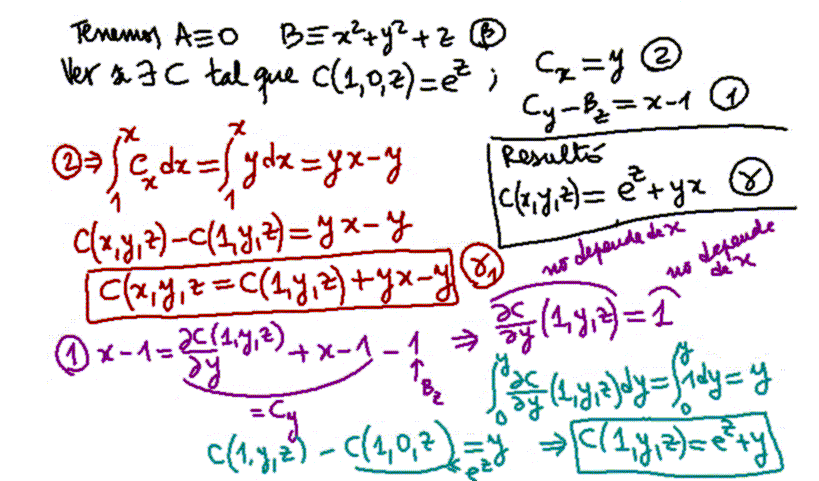 Tenemos A≡0 B≡x²+y²+z (β)
Ver si ∃ C tal que C(1,0,z)=e^z ; C_x = y (2)
C_y − B_z = x−1 (1)
(2) ⇒ ∫₁ˣ C_x dx = ∫₁ˣ y dx = yx − y
Resultó
C(x,y,z) = e^z + yx (γ)
C(x,y,z) − C(1,y,z) = yx − y
C(x,y,z = C(1,y,z) + yx − y (γ₁)
no depende de x
no depende de x
(1) x−1 = ∂C(1,y,z)/∂y + x−1 − 1 ⇒ ∂C/∂y (1,y,z) = 1
= C_y
↑ B_z
∫₀ʸ ∂C/∂y (1,y,z) dy = ∫₀ʸ 1 dy = y
C(1,y,z) − C(1,0,z) = y ⇒ C(1,y,z) = e^z + y
e^z